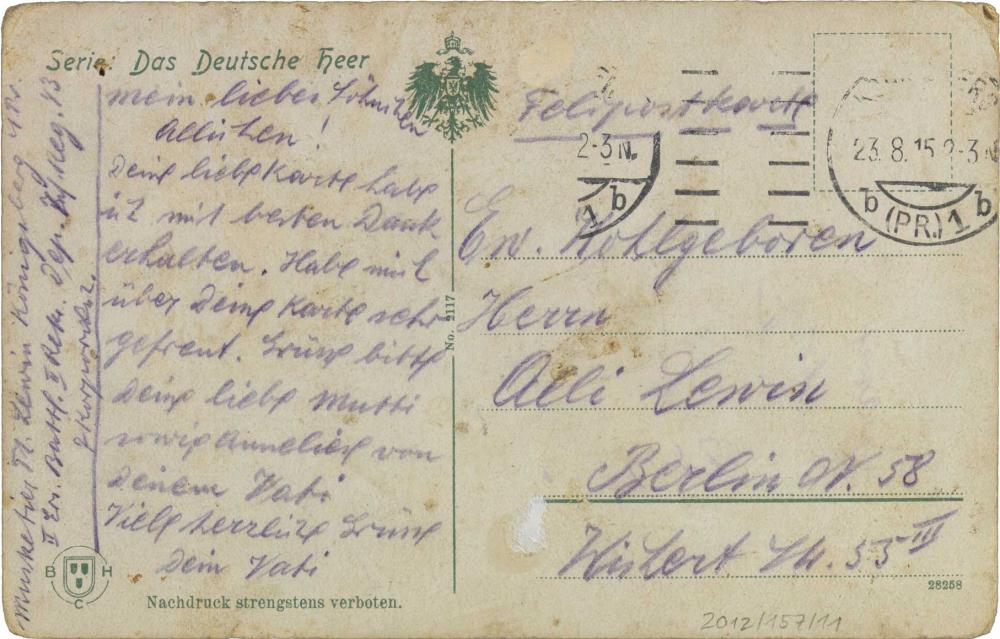 Serie: Das Deutsche Heer
mein liebes Söhnchen
Allichen!
Deine liebe Karte habe
ich mit besten Dank
erhalten. Habe mich
über Deine Karte sehr
gefreut. Grüße bitte
Deine liebe Mutti
sowie Annelies von
Deinem Vati
Viele herzliche Grüße
Dein Vati
Musketier M. Lewin Königsberg i/Pr.
II Ers. Batl. I Rekr. Dep. Reg. 43
Korporalsch.
No. 2117
B H
C
Nachdruck strengstens verboten.
Feldpostkarte
2-3 N.
1 b
23. 8. 15 2-3 N
b (PR.) 1 b
Ew. Wohlgeboren
Herrn
Alli Lewin
Berlin N. 58
Wichert Str. 55 III
28258
2012/157/11